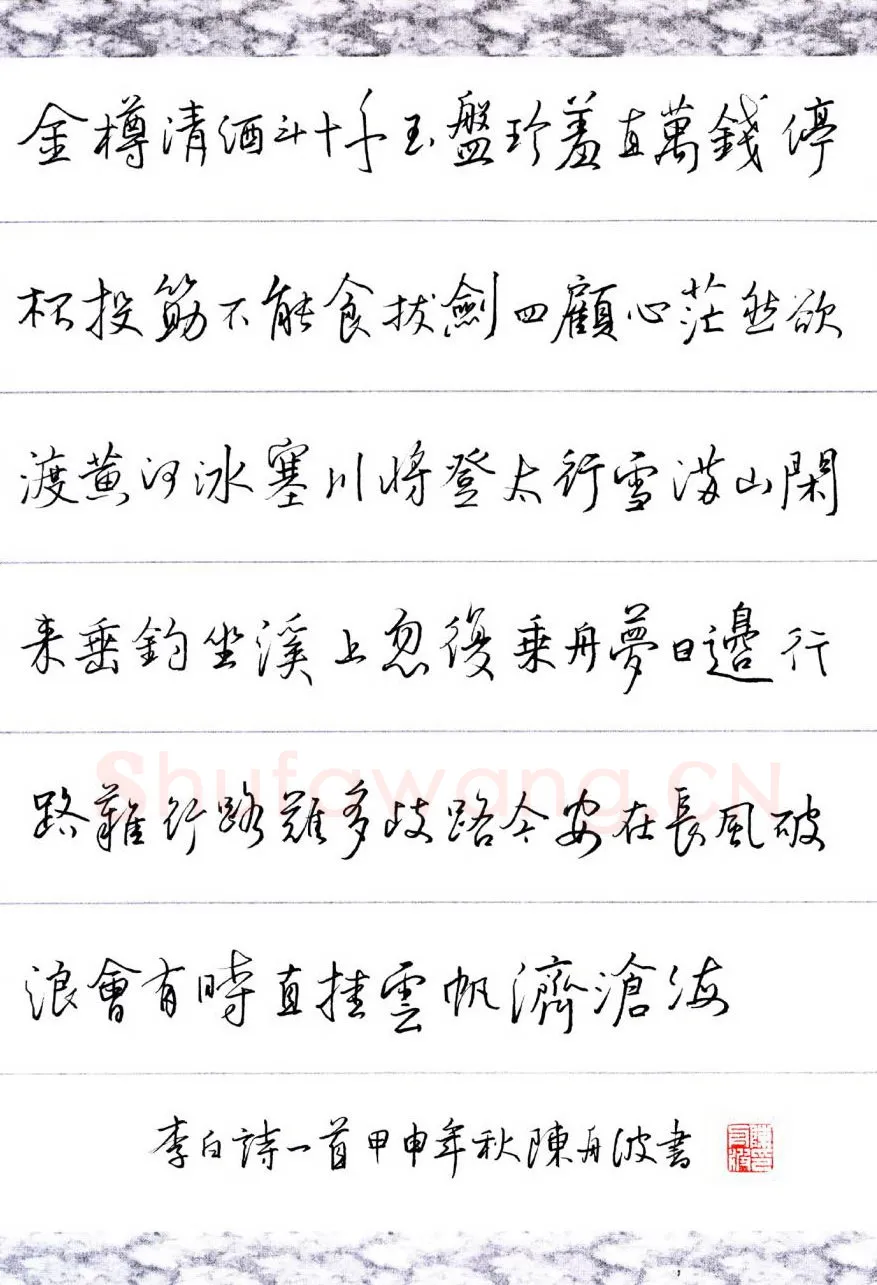 金樽清酒斗十千玉盤珍羞直萬錢停
杯投筯不能食拔劍四顧心茫然欲
渡黄河冰塞川将登太行雪满山閑
来垂釣坐溪上忽復乘舟夢日邊行
路難行路難多歧路今安在長風破
浪會有時直挂雲帆濟滄海
李白詩一首甲申年秋陳舟波書
Shufawang.CN